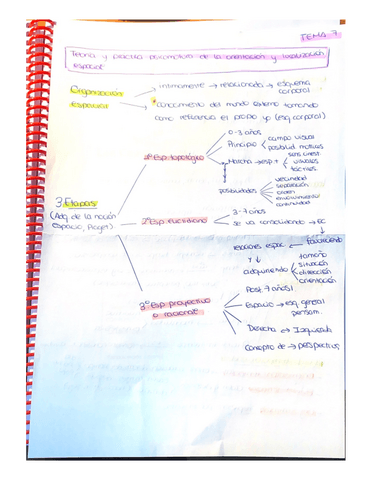 TEMA 7
Teoría y práctica psicomotora de la orientación y localización
espacial
Organización → íntimamente → relacionada → esquema
corporal
espacial
conocimiento del mundo externo tomando
como referencia es propio yo (esq corporal)
3 Etapas
(Adq de la noción
espacio, Piaget)
1º Esp. topológico
0-3 años
Principio
campo visual
posibilid. motrices
Marcha → esp +
sens. cinest.
visuales
táctiles
posibilidades
vecindad
separación
orden
envolvimiento
continuidad
2º Esp. euclidiano
3-7 años
se va consolidando → EC
favoreciendo
relaciones espac.
y
adquiriendo
tamaño
situación
dirección
orientación
3º Esp proyectivo
o racional
Post. 7 años
Espacio → esq. general
pensam.
Derecha ↔ Izquierda
Concepto de → perspectiva